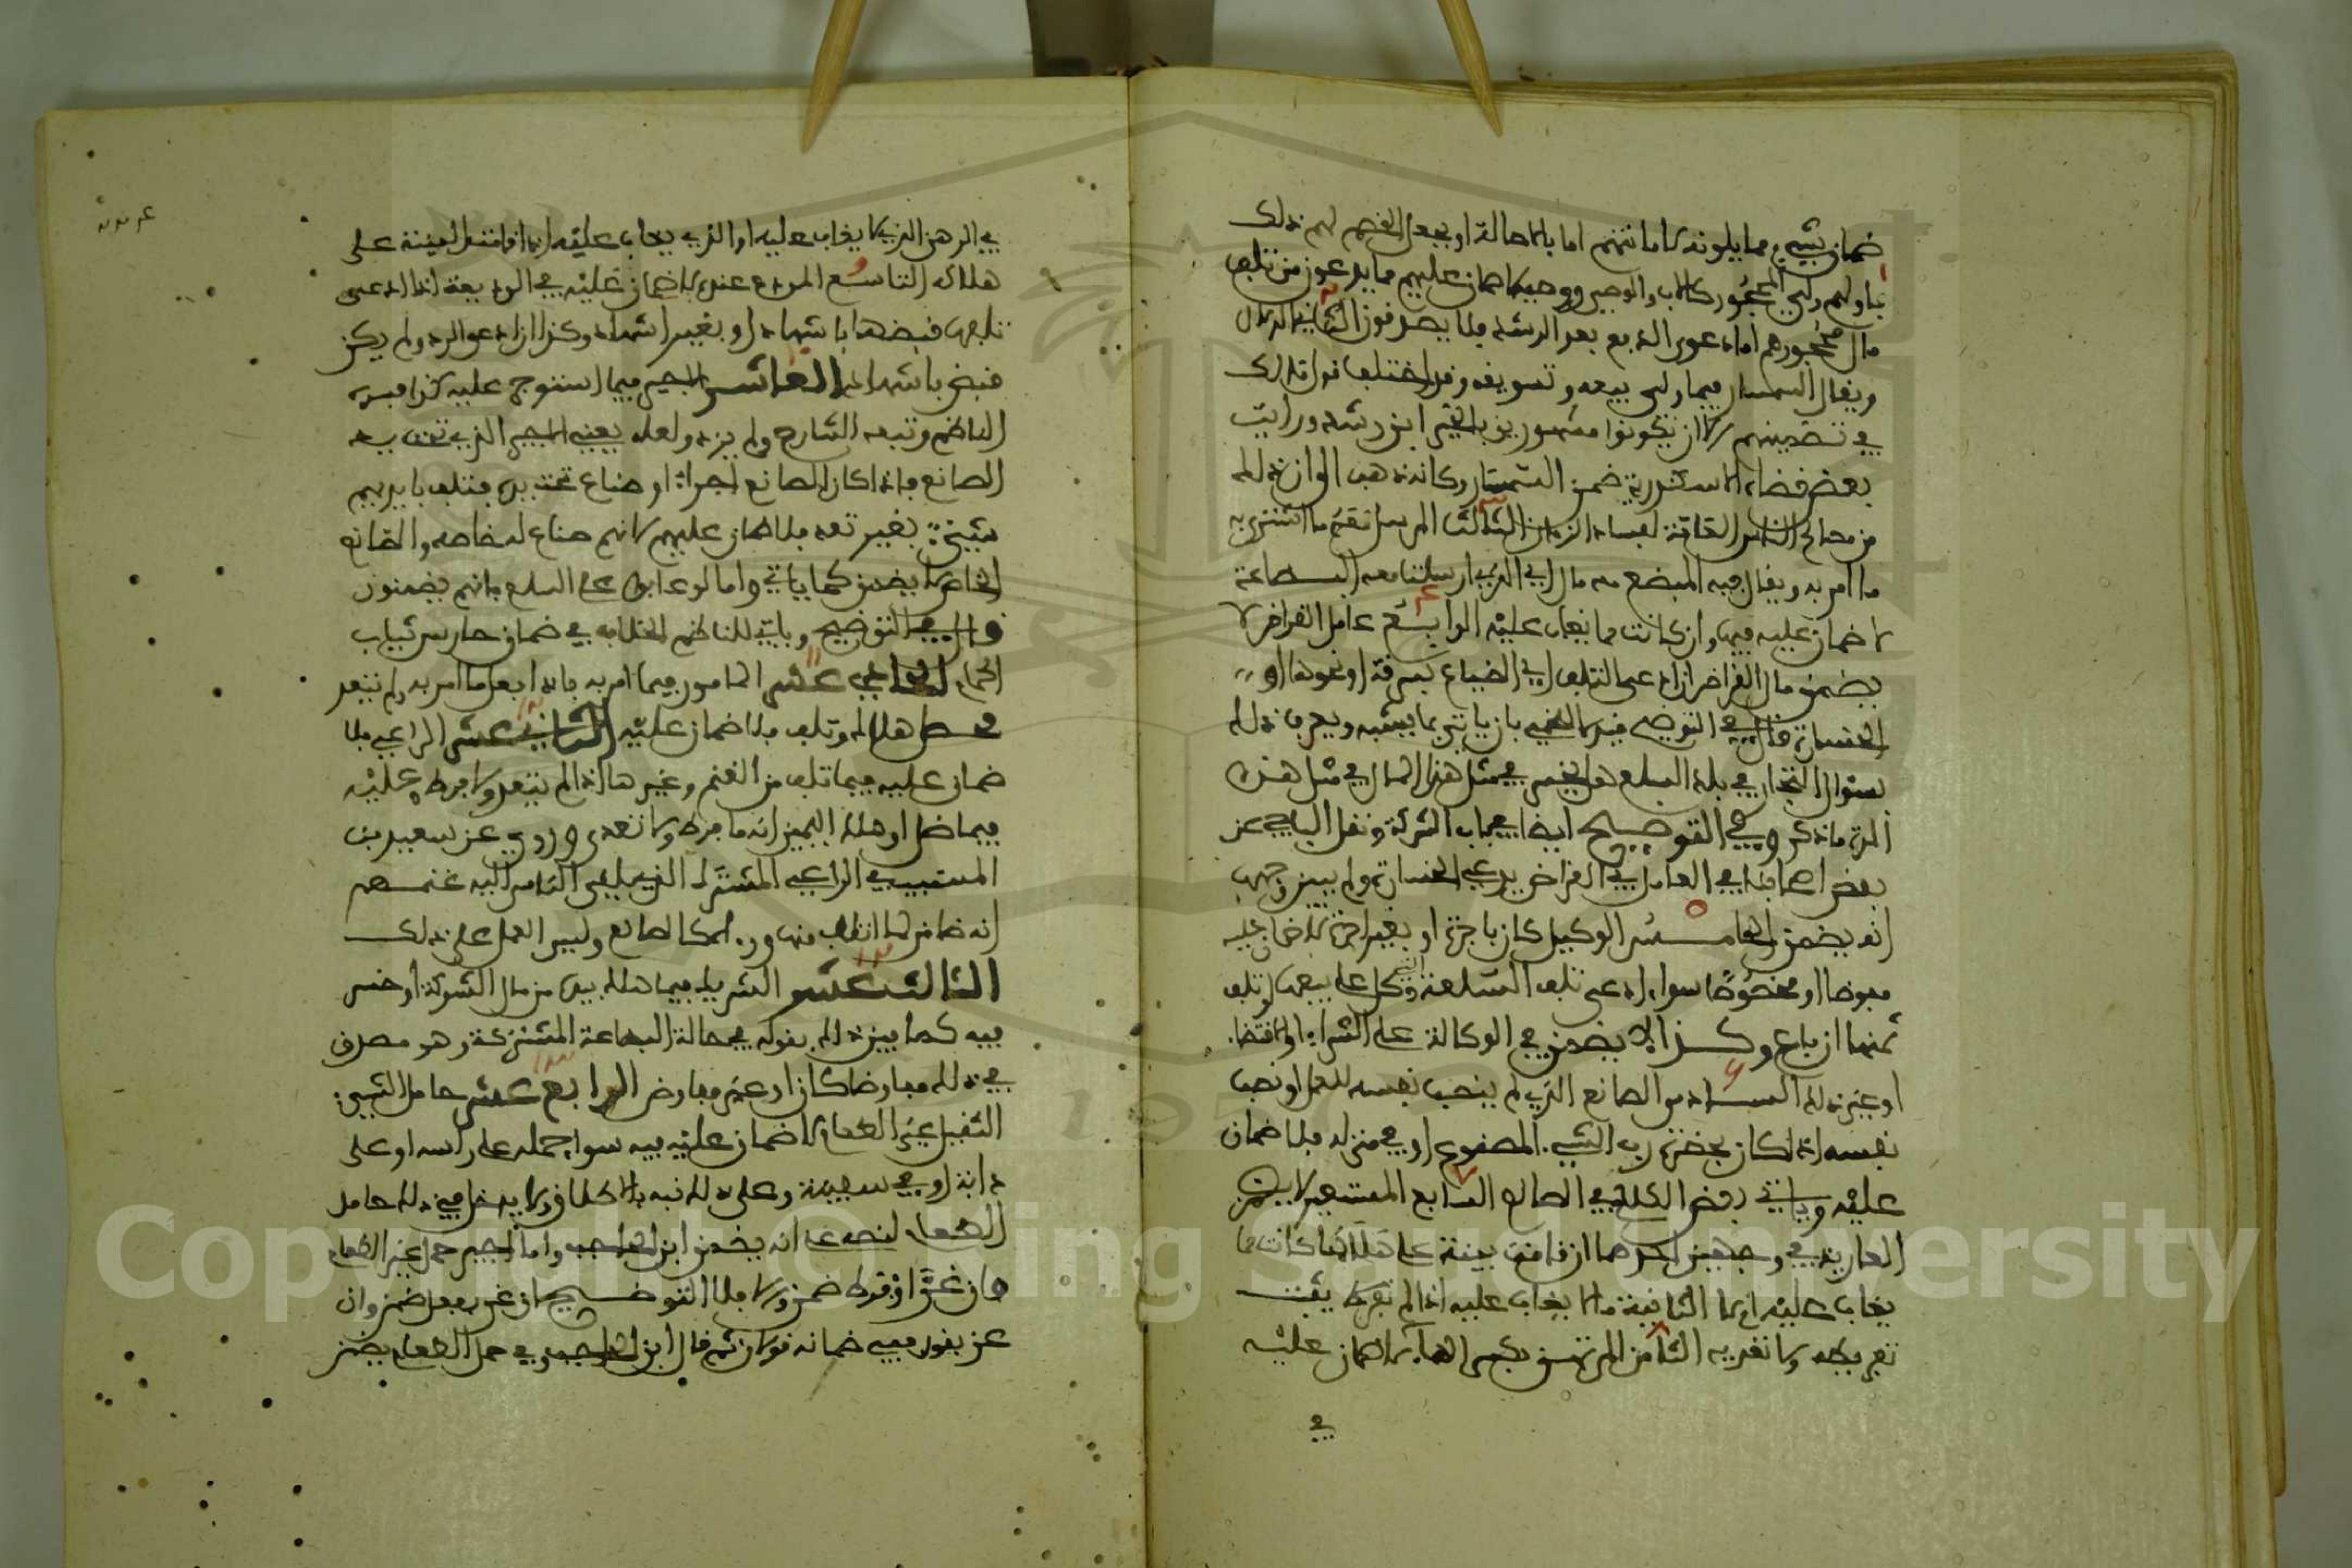 ضمان شيء مما يلونه لامانتهم اما بالاصالة او بجعل الغير لهم ذلك
فاولهم ولي المحجور كالاب والوصي ووصيه لا ضمان عليهم فيما يدعون من تلف
مال محجورهم اما دعوى الدفع بعد الرشد فلا يصدقون الثاني الدلال
ويقال السمسار فيما ولي بيعه وتسويقه وقد اختلف قول مالك
في تضمينهم الا ان يكونوا مشهورين بالخير ابن رشد ورايت
بعض قضاة الاسكندرية ضمن السمسار وكانه ذهب الى ان ذلك
من مصالح الناس العامة لفساد الزمان الثالث المرسل معه ما اشترى به
ما امر به ويقال فيه المبضع معه مال اي الذي ارسلنا معه البضاعة
لا ضمان عليه فيها وان كانت مما يغاب عليه الرابع عامل القراض لا
يضمن مال القراض ان ادعى التلف اي الضياع بسرقة او نحوها او
الخسارة قال في التوضيح قيد اللخمي بان ياتي بما يشبه ويعرف ذلك
بسؤال التجار في بلد السلع هل يخسر في مثل هذا المال في مثل هذه
المدة ما ذكر وفي التوضيح ايضا في باب الشركة ونقل الباجي عن
بعض اصحابنا في العامل في القراض يدعي الخسارة ولم يبين وجهها
انه يضمن الخامس الوكيل كان باجرة او بغير اجرة لا ضمان عليه
مفوضا او مخصوصا سواء ادعى تلف السلعة التي وكل على بيعها او تلف
ثمنها ان باع وكذا لا يضمن في الوكالة على الشراء او الاقتضاء
او غير ذلك السادس الصانع الذي لم ينصب نفسه للعمل او نصب
نفسه اذا كان بحضرة رب الشيء المصنوع او في منزله فلا ضمان
عليه وياتي بعض الكلام في الصانع السابع المستعير لا يضمن
العارية في وجهين احدهما ان قامت بينة على هلاكها كانت مما
يغاب عليه ام لا الثانية ما لا يغاب عليه اذا لم تعرف بينة
تفريطه ولا تعديه الثامن المرتهن بكسر الهاء لا ضمان عليه
في
في الرهن الذي لا يغاب عليه او الذي يغاب عليه اذا قامت البينة على
هلاكه التاسع المودع عنده لا ضمان عليه في الوديعة اذا ادعى
تلفها قبضها باشهاد او بغير اشهاد وكذا ان ادعى الرد ولم يكن
قبض باشهاد العاشر الاجير فيما استوجر عليه كذا قيده
الناظم وتبعه الشارح ولم يزد ولعله يعني الاجير الذي تحت يد
الصانع فاذا كان للصانع اجراء او صناع تحت يده فتلف بايديهم
شيء بغير تعد فلا ضمان عليهم لانهم صناع لخاصه والصانع
الخاص لا يضمن كما ياتي
قال في التوضيح وياتي للناظم الخلاف في ضمان حارس ثياب
الحمام الحادي عشر المامور فيما امر به فانه ان فعل ما امر به ولم يتعد
فحصل هلاك وتلف فلا ضمان عليه الثاني عشر الراعي فلا
ضمان عليه فيما تلف من الغنم وغيرها اذا لم يتعد ولا فرط وعليه
فيما ضل او هلك اليمين انه ما فرط ولا تعدى وروي عن سعيد بن
المسيب في الراعي المشترك الذي يلقي الناس اليه غنمهم
انه ضامن لما تلف منها وراه كالصانع وليس العمل على ذلك
الثالث عشر الشريك فيما هلك بيده من مال الشركة او خسر
فيه كما بين ذلك بقوله في حالة البضاعة المشتركة وهو مصدق
في ذلك مفاوضا كان او غير مفاوض الرابع عشر حامل الشيء
الثقيل غير الطعام لا ضمان عليه فيه سواء حمله على راسه او على
دابة او في سفينة وعلى ذلك نبه بالاطلاق ولا يدخل في ذلك حامل
الطعام لنصه على انه يضمن ابن الحاجب واما اجير حمل غير الطعام
فان غر او فرط ضمن والا فلا التوضيح فان غر بفعل ضمن وان
غر بقول ففي ضمانه قولان ثم قال ابن الحاجب وفي حمل الطعام يضمن